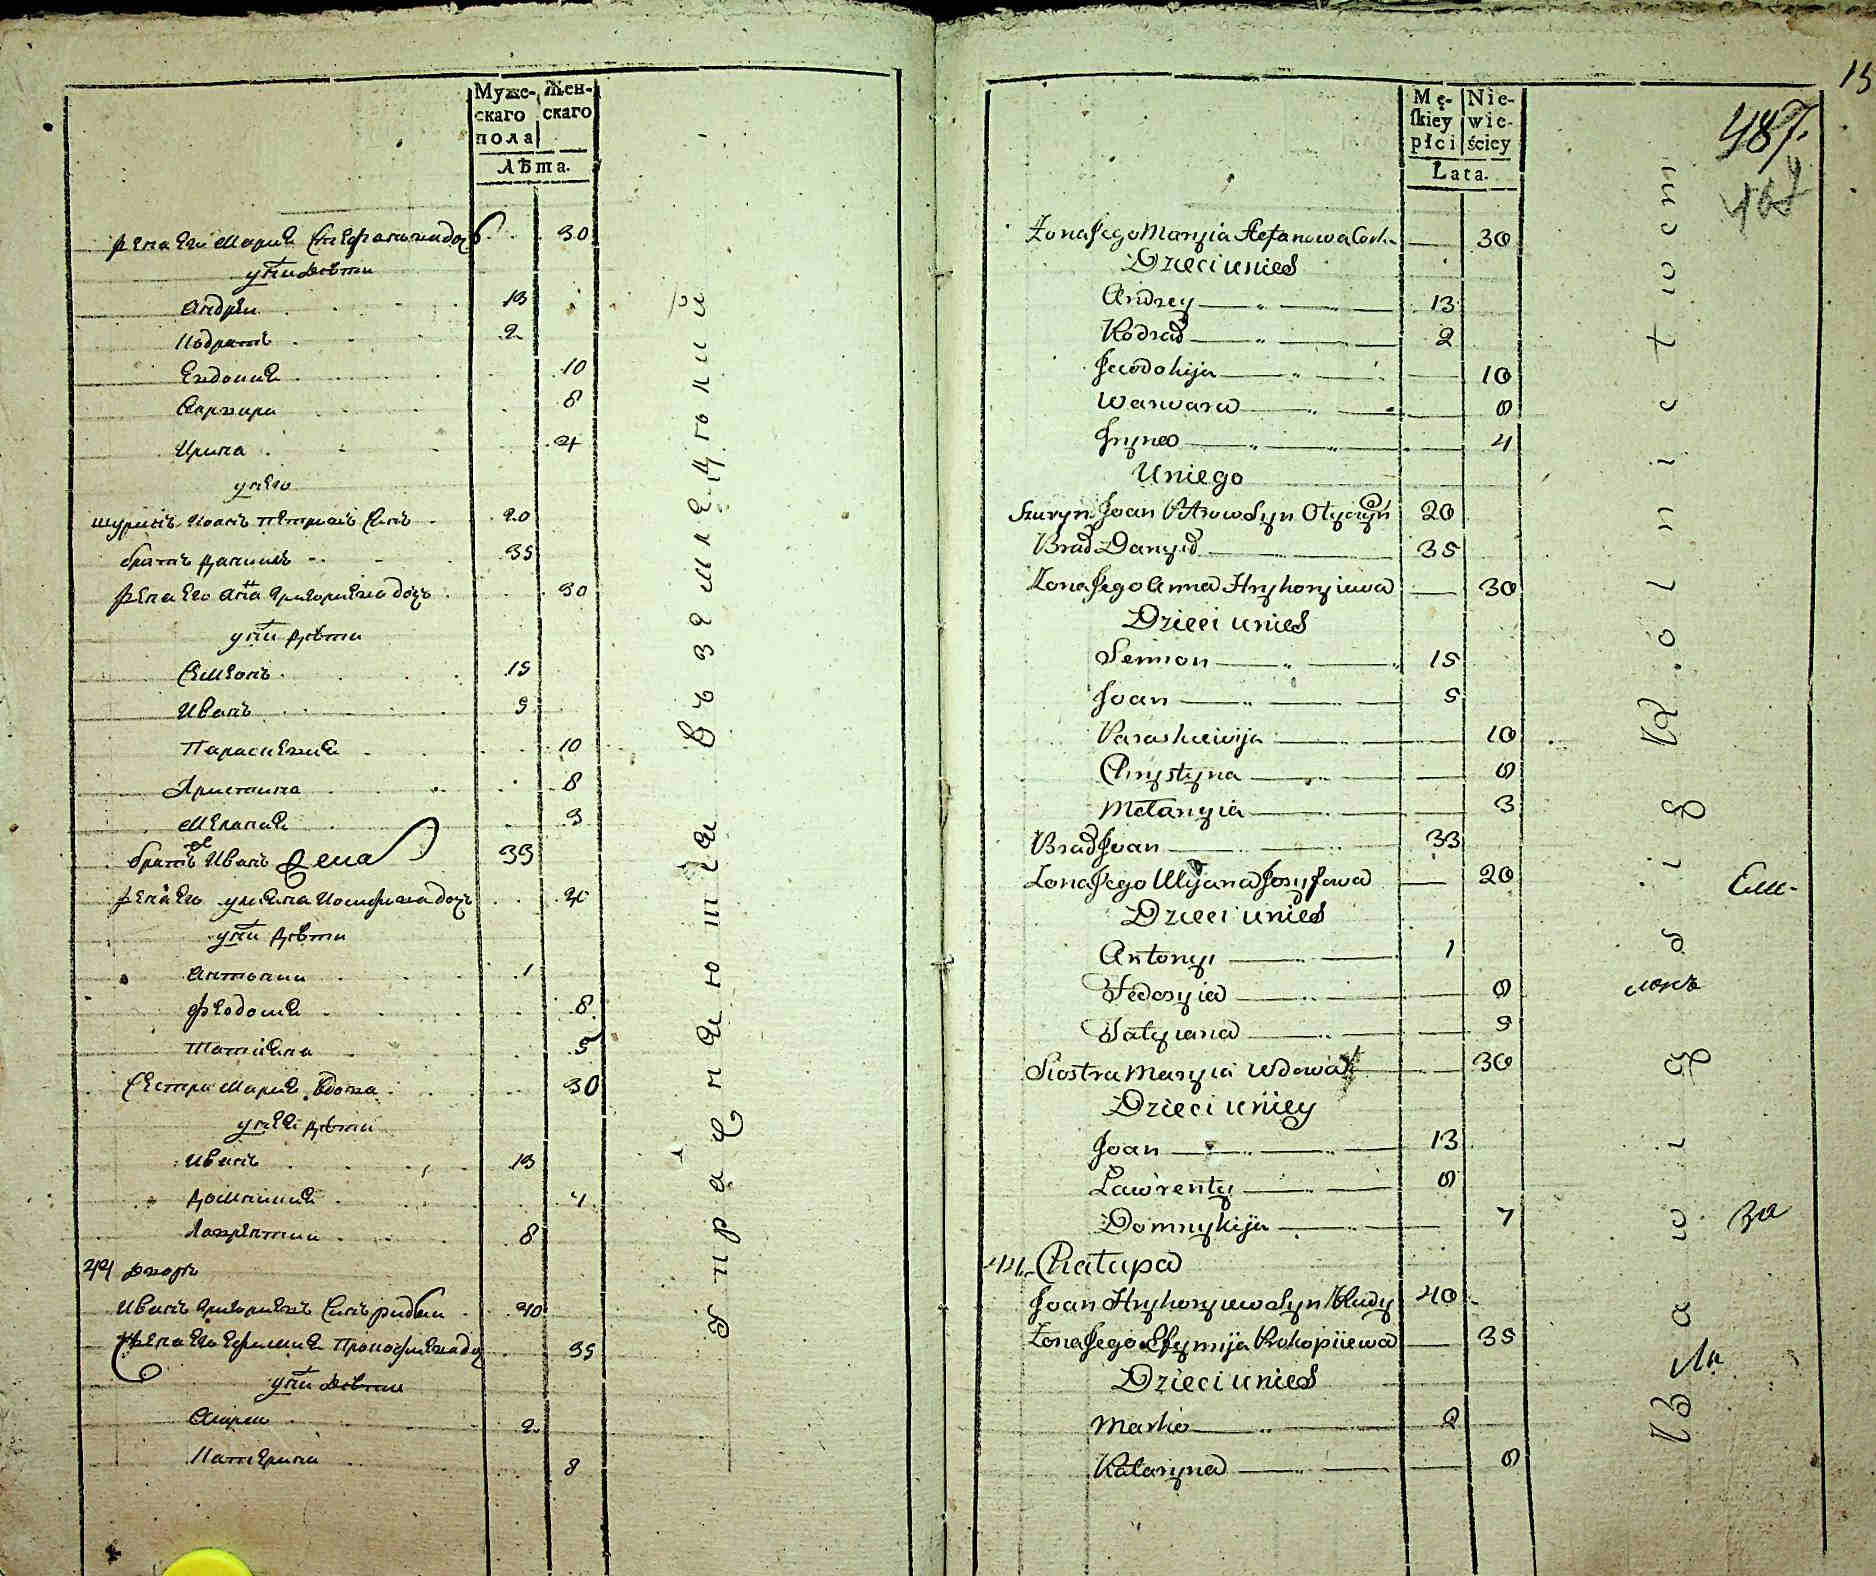 Муже- Жен-
скаго скаго
пола
Лѣта.
жена Его Мария Стефановна дочь 30
у них дѣти
Андрей 13
Кодратъ 2
Евдокия 10
Варвара 8
Ирина 4
у него
шуринъ Иоанъ Петровъ Сынъ 20
братъ Даниилъ 35
жена Его Анна Григориевна дочь 30
у них дѣти
Симеонъ 15
Иванъ 5
Параскевия 10
Христина 8
Мелания 3
братъ Иванъ 33
жена Его Улияна Иосифова дочь 20
у них дѣти
Антоний 1
Феодосия 8
Татияна 5
Сестра Мария вдова 30
у нея дѣти
Иванъ 13
Домникия 7
Лаврентий 8
44 дворъ
Иванъ Григориевъ Сынъ рудый 40
Жена Его Ефимия Прокофиева до 35
у них дѣти
Марко 2
Катерина 8
въ земледѣлии
15
Mę- Nie-
skiey wie-
płci ściey
Lata.
487.
467
Zona Jego Maryia Stefanowa Cork. 30
Dzieci u nich
Andrey 13
Kodrad 2
Jewdokija 10
Warwara 8
Iryna 4
U niego
Szuryn Joan Petrow Syn 20
Brad Danyił 35
Zona Jego Anna Hryhoryiewa 30
Dzieci u nich
Semion 15
Joan 5
Paraskiewija 10
Chrystyna 8
Mełanyia 3
Brad Joan 33
Zona Jego Ulyana Josyfowa 20
Dzieci u nich
Antonyi 1
Fedosyia 8
Tatyiana 5
Siostra Maryia Wdowa 30
Dzieci u niey
Joan 13
Ławrenty 8
Domnykija 7
44. Chałupa
Joan Hryhoryiew Syn Rudy 40
Zona Jego Efymija Prokopiiewa 35
Dzieci u nich
Marko 2
Kataryna 8
Rolnictwem